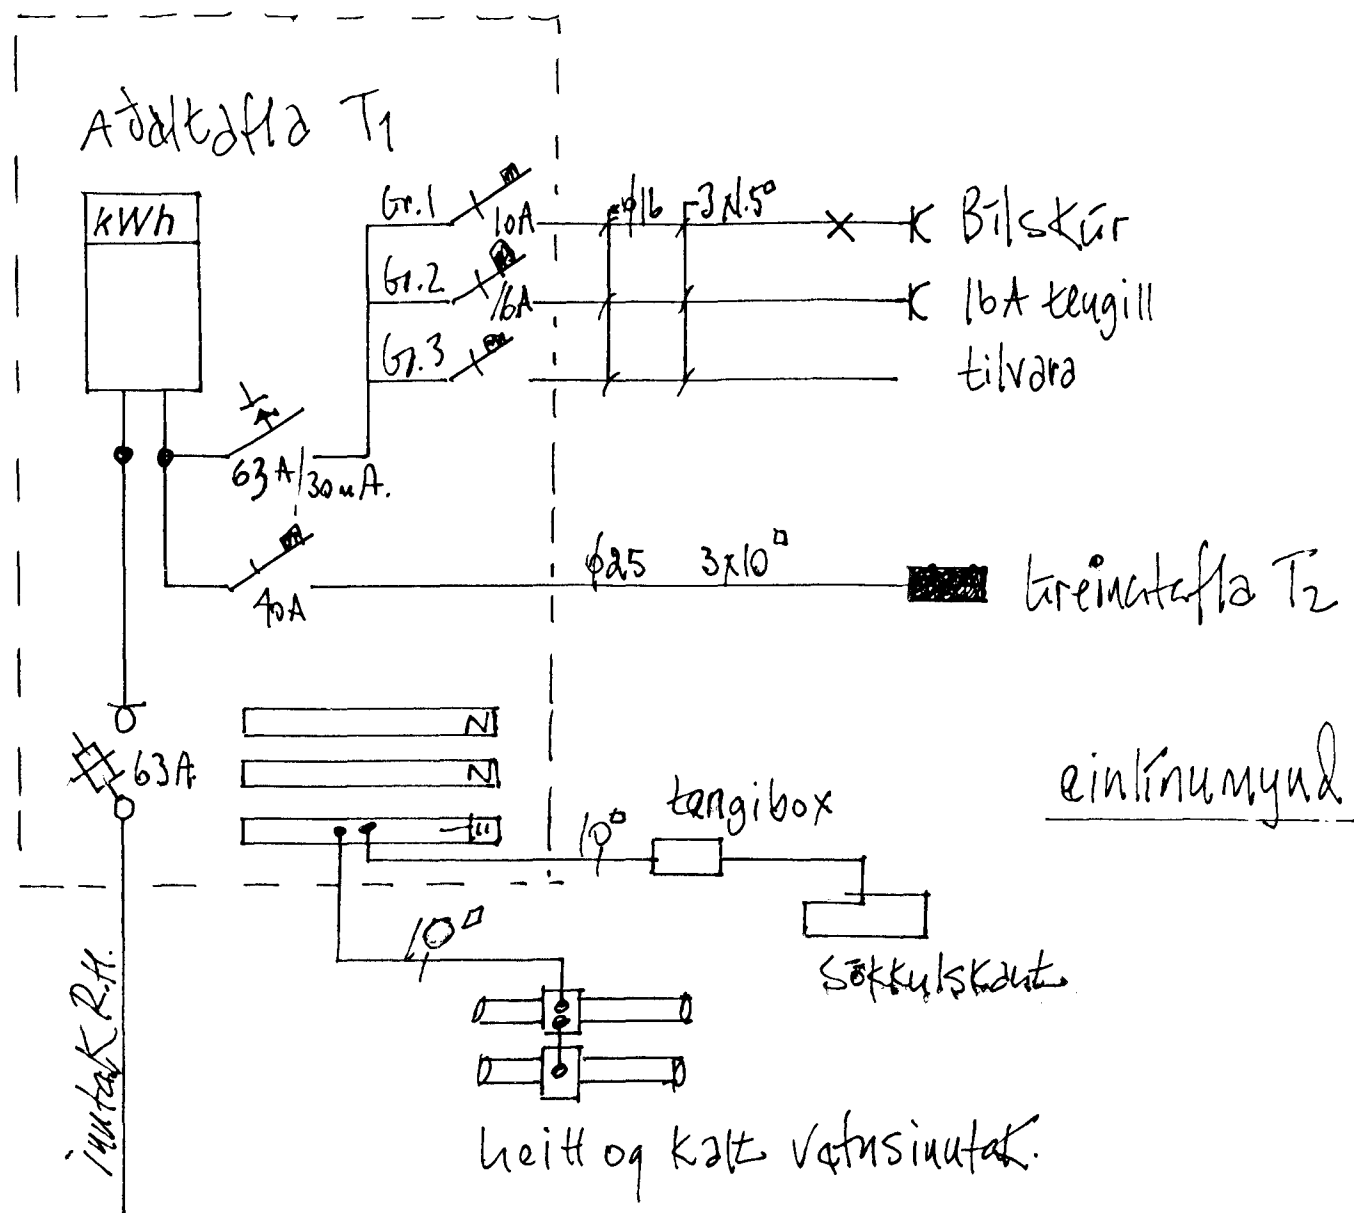 Aðaltafla T1
kWh
Gr.1
10A
ϕ16
3x1.5▫
Bílskúr
Gr.2
16A
16A tengill
Gr.3
tilvara
63A/30mA.
40A
ϕ25
3x10▫
Greinatafla T2
63A.
N
N
einlínumynd
tengibox
10▫
10▫
sökkulskaut
inntak R.H.
heitt og kalt vatnsinntak.